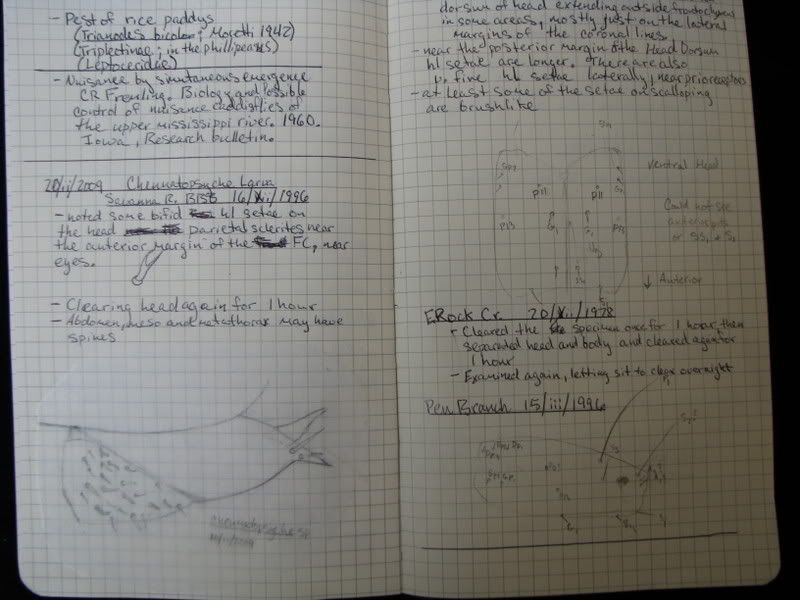 - Pest of rice paddys
(Trianodes bicolor; Moretti 1942)
(Triplectinae; in the phillipenes)
(Leptoceridae)
- Nuisance by simutaneous emergence
CR Fremling. Biology and possible
control of nuisance caddisflies of
the upper mississippi river. 1960.
Iowa, Research bulletin.
20/ii/2009 Cheumatopsyche Larva
Savanna R. 16/Xii/1996
- noted some bifid hl setae on
the head parietal sclerites near
the anterior margin of the FC, near
eyes.
- Clearing head again for 1 hour
- Abdomen, meso and metathorax may have
spines
Cheumatopsyche sp.
dorsum of head extending outside
in some areas, mostly just on the lateral
margins of the coronal lines.
- near the posterior margin of the Head Dorsum
hl setae are longer. There are also
fine hl setae laterally, near
- at least some of the setae on scalloping
are brushlike
Ventral Head
P11 P11
P13
Could not see
anterior
or SS, + S,
↓ Anterior
ERock Cr. 20/Xii/1978
- Cleared the specimen once for 1 hour, then
separated head and body and cleared again for
1 hour
- Examined again, letting sit to clear overnight
Pen Branch 15/iii/1996